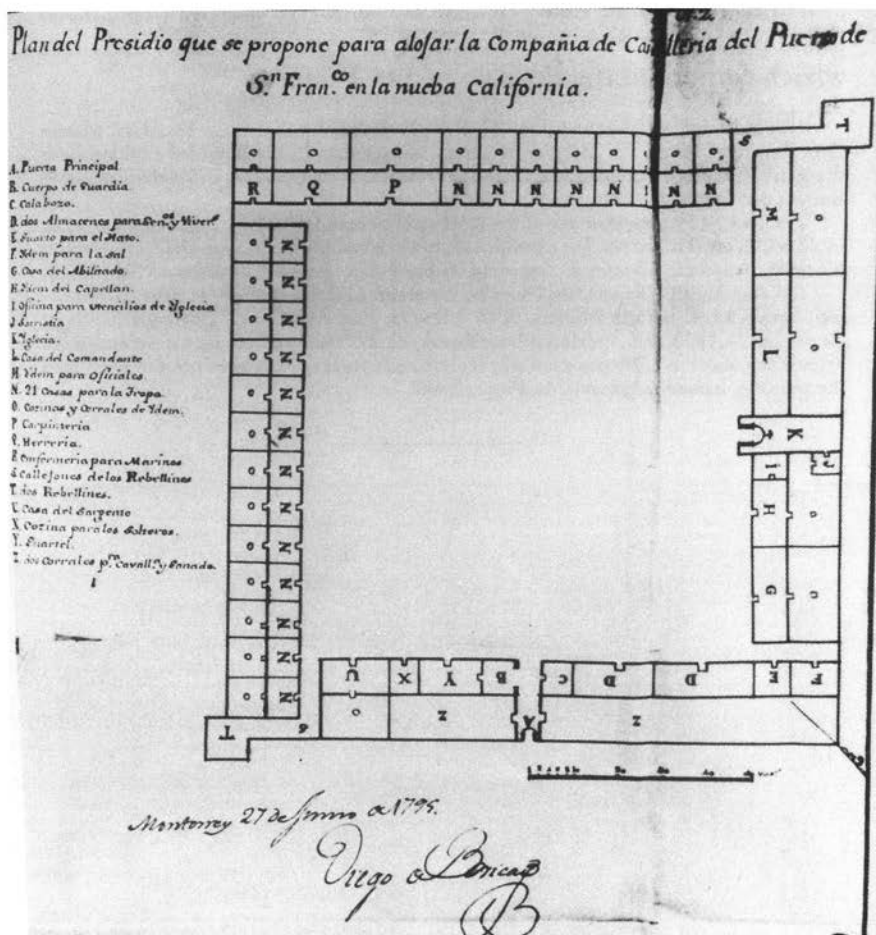 Plan del Presidio que se propone para alojar la Compañia de Cavalleria del Puerto de
S.ⁿ Fran.ᶜᵒ en la nueba California.
A. Puerta Principal
B. Cuerpo de Guardia
C. Calabozo.
D. dos Almacenes para Gen.ᵒˢ y Viver.ˢ
E. Quarto para el Hato.
F. Ydem para la sal
G. Casa del Abilitado.
H. Ydem del Capellan.
I. Oficina para utencilios de Yglecia
J. Sacristia
K. Yglecia.
L. Casa del Comandante
M. Ydem para Oficiales
N. 21 Casas para la Tropa.
O. Cozinas y Corrales de Ydem.
P. Carpinteria
Q. Herreria.
R. Enfermeria para Marinos
S. Callejones de los Rebellines
T. dos Rebellines.
U. Casa del Sargento
X. Cozina para los Solteros.
Y. Quartel.
Z. dos Corrales p.ʳᵃ Cavall.ˢ y Ganado.
T
S
O O O O O O O O O O
R Q P N N N N N N N
M O
L O
K
I J
H O
G O
O N
O N
O N
O N
O N
O N
O N
O N
O N
O N
O N
O N
O N
O N
U X Y B C D D E F
T S O Z A Z
Monterrey 27 de Junio de 1795.
Diego de Borica